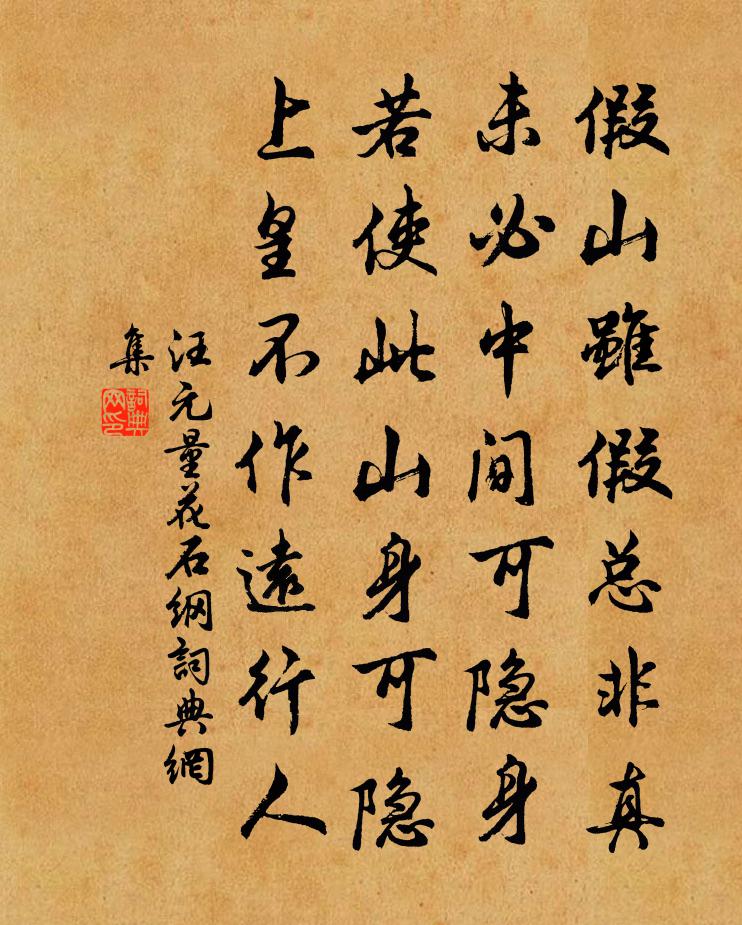 假山雖假总非真
未必中间可隐身
若使此山身可隐
上皇不作遠行人
汪元量花石纲詞典網
集
詞典
网印